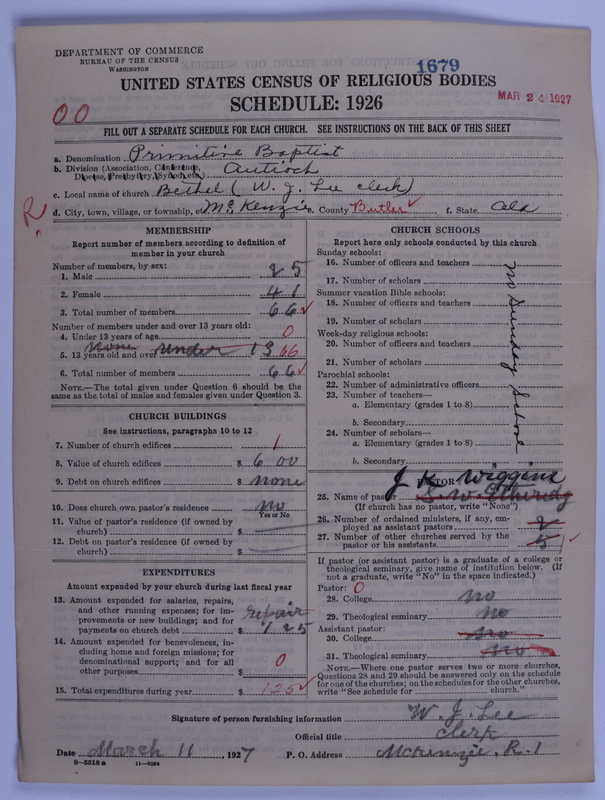 DEPARTMENT OF COMMERCE
BUREAU OF THE CENSUS
WASHINGTON
1679
UNITED STATES CENSUS OF RELIGIOUS BODIES
SCHEDULE: 1926
MAR 24 1927
00
FILL OUT A SEPARATE SCHEDULE FOR EACH CHURCH. SEE INSTRUCTIONS ON THE BACK OF THIS SHEET
a. Denomination Primitive Baptist
b. Division (Association, Conference, Diocese, Presbytery, Synod, etc.) Antioch
c. Local name of church Bethel (W. J. Lee clerk)
R
d. City, town, village, or township, etc. McKenzie e. County Butler f. State Ala
MEMBERSHIP
Report number of members according to definition of
member in your church
Number of members, by sex:
1. Male 25
2. Female 41
3. Total number of members 66
Number of members under and over 13 years old:
4. Under 13 years of age 0
none under 13
5. 13 years old and over 66
6. Total number of members 66
NOTE.—The total given under Question 6 should be the
same as the total of males and females given under Question 3.
CHURCH BUILDINGS
See instructions, paragraphs 10 to 12
7. Number of church edifices 1
8. Value of church edifices $ 600
9. Debt on church edifices $ none
10. Does church own pastor's residence? no
Yes or No
11. Value of pastor's residence (if owned by
church) $
12. Debt on pastor's residence (if owned by
church) $
EXPENDITURES
Amount expended by your church during last fiscal year
13. Amount expended for salaries, repairs,
and other running expenses; for im-
provements or new buildings; and for
payments on church debt $ repair 125
14. Amount expended for benevolences, in-
cluding home and foreign missions; for
denominational support; and for all
other purposes $ 0
15. Total expenditures during year $ 125
CHURCH SCHOOLS
Report here only schools conducted by this church
Sunday schools:
16. Number of officers and teachers
17. Number of scholars
Summer vacation Bible schools:
18. Number of officers and teachers
19. Number of scholars
Week-day religious schools:
20. Number of officers and teachers
21. Number of scholars
Parochial schools:
22. Number of administrative officers
23. Number of teachers—
a. Elementary (grades 1 to 8)
b. Secondary
24. Number of scholars—
a. Elementary (grades 1 to 8)
b. Secondary
no Sunday School
PASTOR
J K Wiggins
25. Name of pastor
(If church has no pastor, write "None")
26. Number of ordained ministers, if any, em-
ployed as assistant pastors 2
27. Number of other churches served by the
pastor or his assistants 5
If pastor (or assistant pastor) is a graduate of a college or
theological seminary, give name of institution below. (If
not a graduate, write "No" in the space indicated.)
Pastor: 0
28. College no
29. Theological seminary no
Assistant pastor:
30. College no
31. Theological seminary no
NOTE.—Where one pastor serves two or more churches,
Questions 28 and 29 should be answered only on the schedule
for one of the churches; on the schedules for the other churches,
write "See schedule for church."
Signature of person furnishing information W. J. Lee
Official title Clerk
Date March 11, 1927 P. O. Address McKenzie, R. 1
8—5518a 11—9054